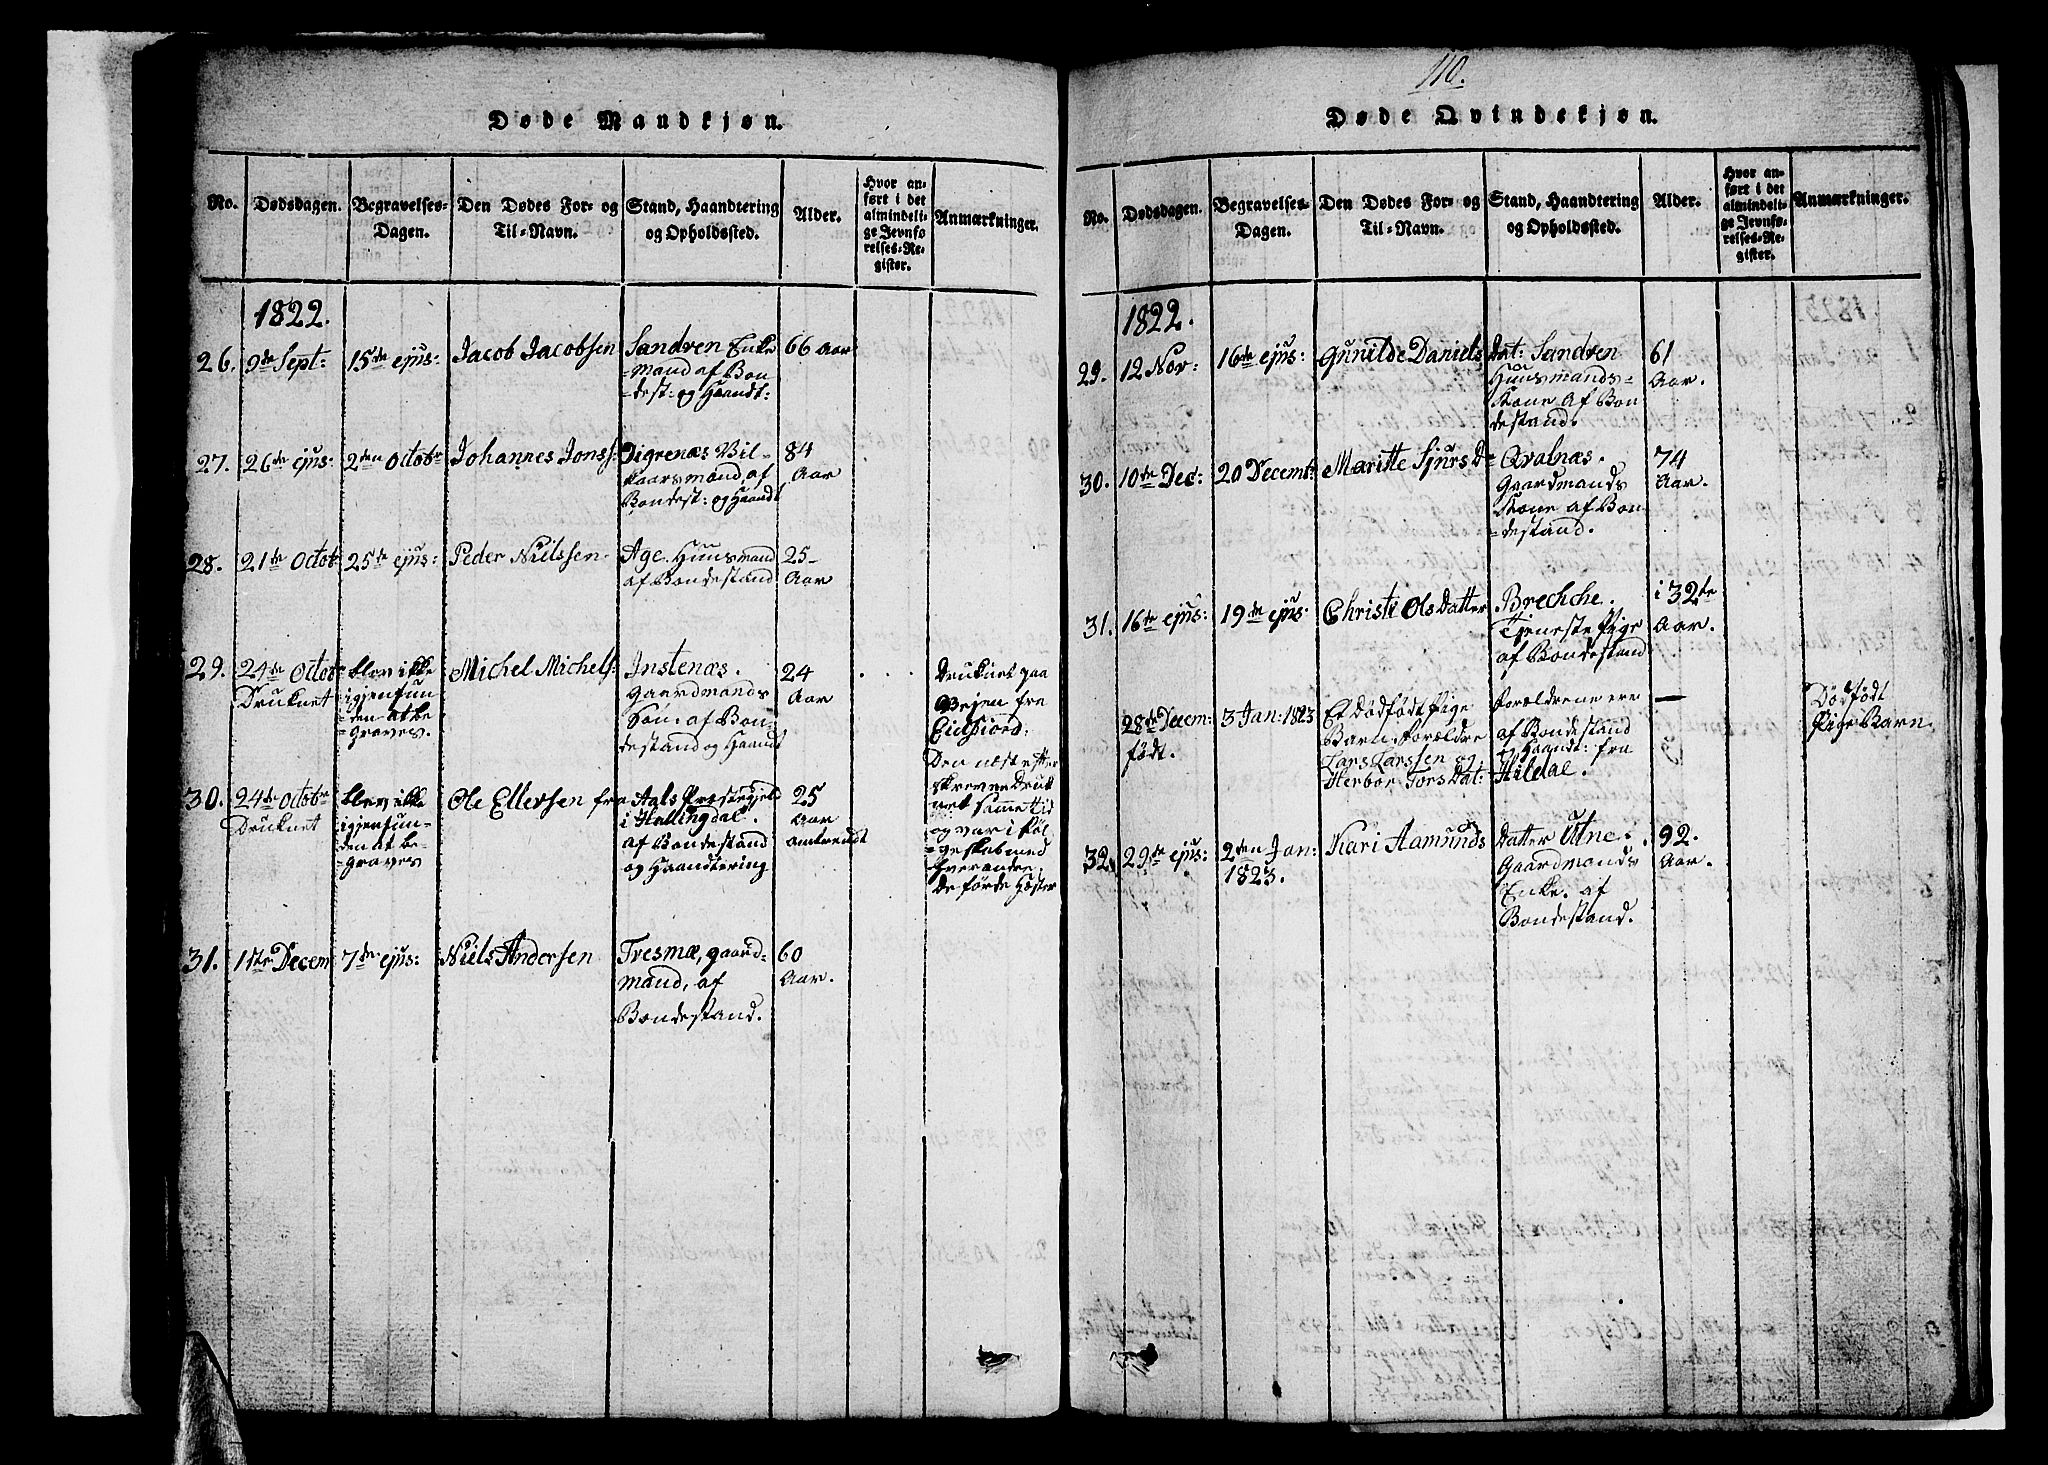 110.
Døde Mandkjøn.
No.
Dødsdagen.
Begravelses-
Dagen.
Den Dødes For- og
Til-Navn.
Stand, Haandtering
og Opholdssted.
Alder.
Hvor an-
ført i det
almindeli-
ge Jevnfø-
relses-Re-
gister.
Anmærkninger.
1822.
26.
9de Sept:
15de ejus:
Jacob Jacobsen
Sandven Enke
=Mand af Bon
=dest: og Haandt:
66 Aar
27.
26de ejus:
2den Octobr
Johannes Jonss:
Digrenæs Vil-
kaarsmand, af
Bondest: og Haandt
84
Aar
28.
21de Octob
25de ejus:
Peder Nielssen
Age. Huusmand
af Bondestand
25-
Aar
29.
24de Octob
Druknet
blev ikke
igjenfun
=den at be
graves.
Michel Michels:
Instenæs.
Gaardmands
Søn. af Bon
destand og Haandt
24
Aar
Druknet paa
Vejen fra
Eidfiord.
30.
24de Octobr
Druknet
blev ikke
igjenfun-
den at be-
graves
Ole Ellersen fra
Aals Præstegjeld
i Hallingdal.
af Bondestand
og Haandtering
25
Aar
omtrendt
Den næst efter
skrevne Druk
net samme tid
og var i Føl
=geskab med
hverandre;
de førde Hæster
31.
1ste Decem
7de ejus:
Niels Andersen
Tresnæ, gaard-
mand, af
Bondestand.
60
Aar.
Døde Qvindekjøn.
No.
Dødsdagen.
Begravelses-
Dagen.
Den Dødes For- og
Til-Navn.
Stand, Haandtering
og Opholdssted.
Alder.
Hvor an-
ført i det
almindeli-
ge Jevnfø-
relses-Re-
gister.
Anmærkninger.
1822.
29.
12 Nov:
16de ejus:
Gunilde Daniels
Dat: Sandven
Huusmands-
Kone af Bon
destand.
61
Aar.
30.
10de Dec:
20 Decemb:
Maritte Sjurs D=
Qvalnæs.
Gaardmands
Kone af Bon-
=destand.
74
Aar.
31.
16de ejus:
19de ejus:
Christi Ols Datter
Brechche.
Tjeneste Pige
af Bondestand
i 32te
Aar.
28de Decem:
født.
3 Jan: 1823
Et dødfødt Pige
Barn. Forældre
Lars Larssen og
Herbor Tors Dat:
Forældrene ere
af Bondestand
og Haandt: fra
Hildal.
—
Dødfødt
Pige Barn.
32.
29de ejus:
2den Jan:
1823.
Kari Aamunds
Datter Utne.
Gaardmands
Enke. af
Bondestand.
92.
Aar.